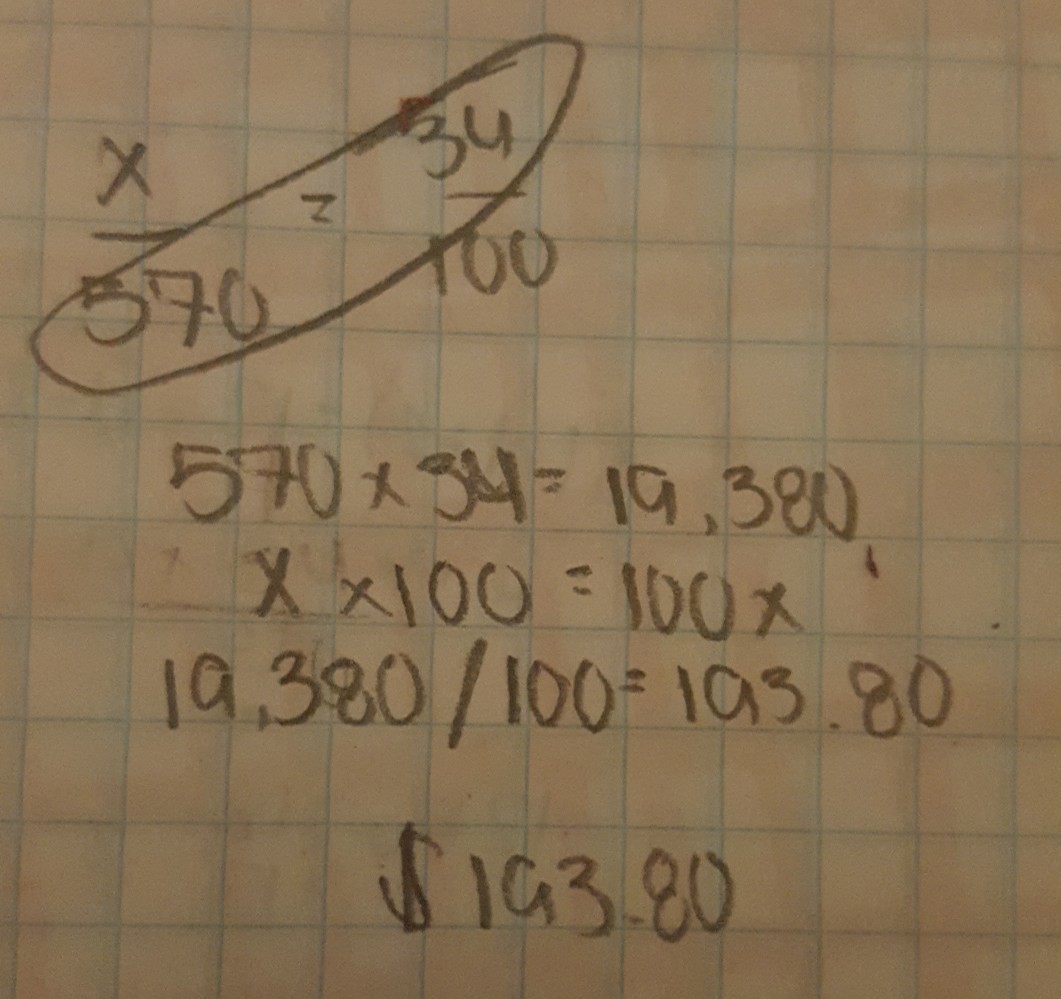 x/570 = 34/100
570 x 34 = 19,380
x x 100 = 100x
19,380 / 100 = 193.80
$193.80